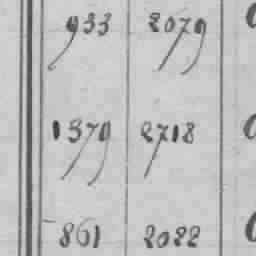 933 2079
1379 2718
861 2022